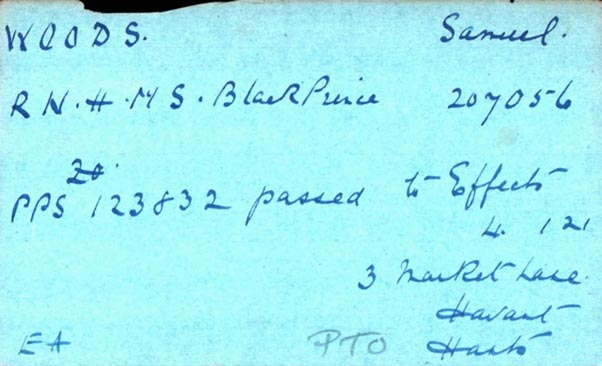 WOODS. Samuel.
R N. H. M S. Black Prince 207056
20.
PPS 123832 passed to Effects
4 1 21
3 Market Lane.
Havant
EA PTO Hants